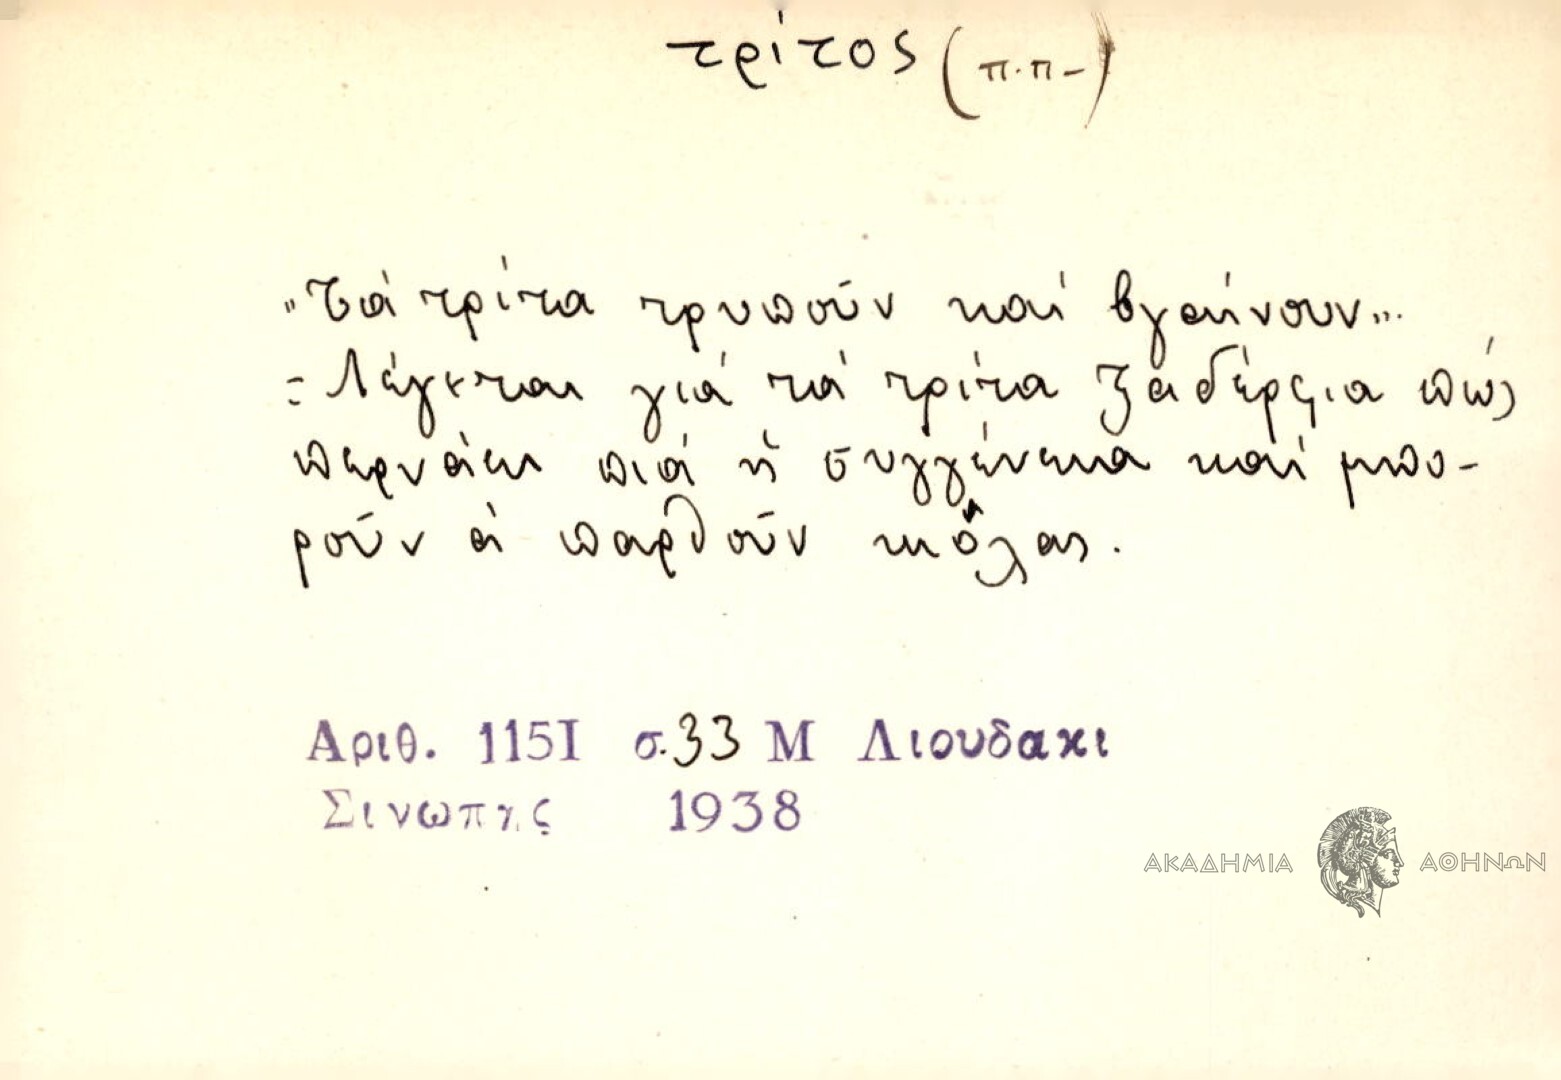 τρίτος (π.π-)
"Τά τρίτα τρυποῦν καί βγαίνουν"..
= Λέγεται γιά τά τρίτα ξαδέρφια πώς
περνάει πιά ἡ συγγένεια καί μπο-
ροῦν ά παρθοῦν κιόλας.
Αριθ. 115Ι σ.33 Μ Λιουδακι
Σινωπης 1938
ΑΚΑΔΗΜΙΑ ΑΘΗΝΩΝ